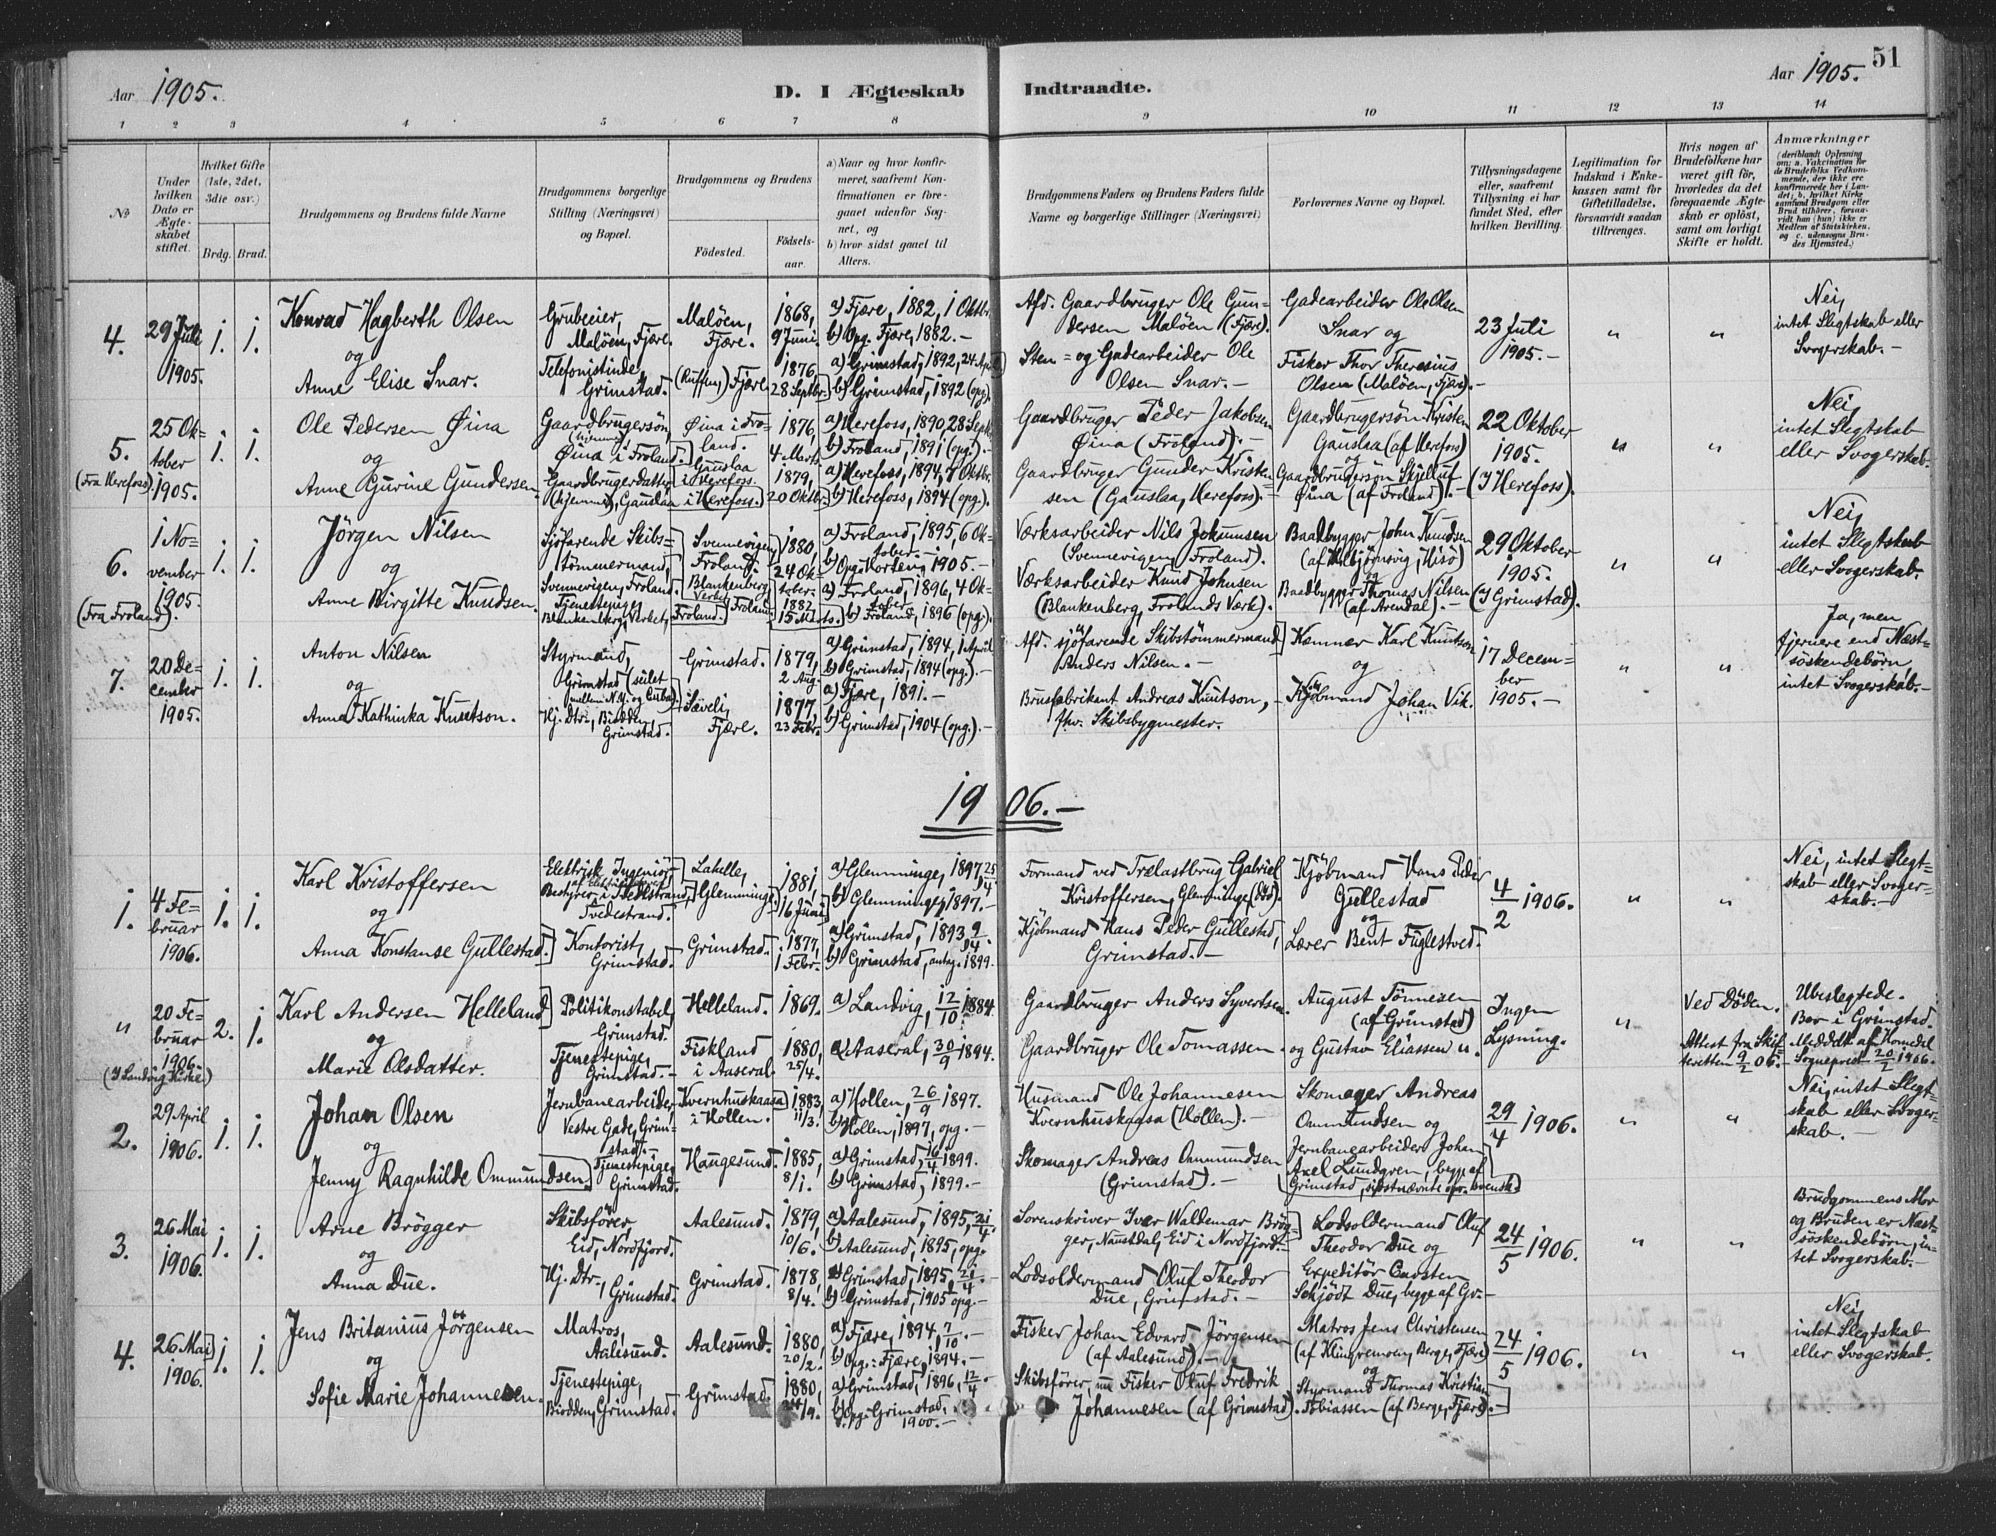 Aar 1905.
D. I Ægteskab Indtraadte.
Aar 1905.
51
1 2 3 4 5 6 7 8 9 10 11 12 13 14
No
Under hvilken Dato er Ægteskabet stiftet.
Hvilket Gifte (1ste, 2det, 3die osv.)
Brdg. Brud.
Brudgommens og Brudens fulde Navne
Brudgommens borgerlige Stilling (Næringsvei) og Bopæl.
Brudgommens og Brudens
Födested.
Födselsaar.
a) Naar og hvor konfirmeret, saafremt Konfirmationen er foregaaet udenfor Sognet, og
b) hvor sidst gaaet til Alters.
Brudgommens Faders og Brudens Faders fulde Navne og borgerlige Stillinger (Næringsvei)
Forlovernes Navne og Bopæl.
Tillysningsdagene eller, saafremt Tillysning ei har fundet Sted, efter hvilken Bevilling.
Legitimation for Indskud i Enkekassen samt for Giftetilladelse, forsaavidt saadan tiltrænges.
Hvis nogen af Brudefolkene har været gift för, hvorledes da det foregaaende Ægteskab er oplöst, samt om lovligt Skifte er holdt.
Anmærkninger
(deriblandt Oplysning om: a. Vakcination for de Brudefolks Vedkommende, der ikke ere konfirmerede her i Landet, b. hvilket Kirkesamfund Brudgom eller Brud tilhörer, forsaavidt han (hun) ikke er Medlem af Statskirken, og c. udensogns Brudes Hjemsted.)
4.
29 Juli
1905.
1. 1.
Konrad Hagberth Olsen
og
Anne Elise Snar.
Grubeeier,
Maløen, Fjære.
Telefonistinde,
Grimstad.
Maløen,
Fjære.
(Ruffen,) Fjære
1868,
9 Juni.
1876,
28 Septbr.
a) Fjære, 1882, 1 Oktbr.
b) Opg. Fjære, 1882.-
a) Grimstad, 1892, 24 Apr.
b) Grimstad, 1892 (opg.)
Afd. Gaardbruger Ole Gun-
dersen Maløen (Fjære).
Sten- og Gadearbeider Ole
Olsen Snar.-
Gadearbeider Ole Olsen
Snar og
Fisker Thor Theresius
Olsen (Maløen, Fjære).-
23 Juli
1905.-
" "
Nei,
intet Slegtskab eller
Svogerskab.-
5.
(Fra Herefoss).
25 Ok-
tober
1905.
1. 1.
Ole Pedersen Øina
og
Anne Gurine Gundersen.
Gaardbrugersön,
(hjemme)
Øina i Froland.
Gaardbrugerdatter
(hjemme), Gauslaa i Herefoss.
Øina i Fro-
land.
Gauslaa
i Herefoss.
1876,
4 Marts
1879,
20 Oktbr.
a) Herefoss, 1890, 28 Sept.
b) Froland, 1891 (opg.).-
a) Herefoss, 1894, 7 Oktbr.
b) Herefoss, 1894 (opg.).
Gaardbruger Peder Jakobsen
Øina (Froland).-
Gaardbruger Gunder Kristen-
sen (Gauslaa, Herefoss).-
Gaardbrugersön Kristen
Gauslaa (af Herefoss)
og
Gaardbrugersön Skjelluf
Øina (af Froland).-
22 Oktober
1905.
(I Herefoss).
" "
Nei,
intet Slegtskab
eller Svogerskab.
6.
(Fra Froland).
1 No-
vember
1905.
1. 1.
Jörgen Nilsen
og
Anne Birgitte Knudsen.
Sjöfarende Skibs-
tömmermand,
Svennevigen, Froland.
Tjenestepige,
Blankenberg, Verket,
Froland.
Svennevigen,
Froland.
Blankenberg
Verket
Froland
1880,
24 Ok-
tober.
1882
15 Marts.
a) Froland, 1895, 6 Ok-
tober.-
b) Opg. Horten, 1905.-
a) Froland, 1896, 4 Ok-
tober
b) Froland, 1896 (opg.).
Værksarbeider Nils Jokumsen
(Svennevigen, Froland).
Værksarbeider Knud Johnsen
(Blankenberg, Frolands Værk).
Baadbygger John Knudsen
(af Kolbjørnsvig, Hisö)
og
Baadbygger Thomas Nilsen
(af Arendal).-
29 Oktober
1905.
(I Grimstad).
" "
Nei,
intet Slegtskab
eller Svogerskab.
7.
20 De-
cember
1905.
1. 1.
Anton Nilsen
og
Anna Kathinka Knutson.
Styrmand,
Grimstad (seilet
mellem N.Y. og Cuba).
Hj. Dtr., Biodden,
Grimstad.
Grimstad.
Sæveli,
Fjære.
1879,
2 Aug.
1877,
23 Febr.
a) Grimstad, 1894, 1 April
b) Grimstad, 1894 (opg.).-
a) Fjære, 1891.-
b) Grimstad, 1904 (opg.).-
Afd. sjöfarende Skibstömmermand
Anders Nilsen.-
Brusfabrikant Andreas Knutson,
fhv. Skibsbygmester.
Kæmner Karl Knutson
og
Kjöbmand Johan Vik.
17 Decem-
ber
1905.-
" "
Ja, men
fjernere end Næst-
söskendebörn
intet Svogerskab.-
1906.-
1.
4 Fe-
bruar
1906.
1. 1.
Karl Kristoffersen
og
Anna Konstanse Gullestad.
Elektrisk Ingeniör,
Bestyrer i Tvedestrand,
Tvedestrand.
Kontorist,
Grimstad.
Lahelle,
Glemminge.
Grimstad.
1881,
16 Juni
1877,
1 Febr.
a) Glemminge, 1897, 25/4.
b) Glemminge, 1897.-
a) Grimstad, 1893, 9/4.
b) Grimstad, antag. 1899.
Formand ved Trælastbrug Gabriel
Kristoffersen, Glemminge (död).
Kjöbmand Hans Peder Gullestad,
Grimstad.-
Kjöbmand Hans Peder
Gullestad
og
Lærer Bent Fuglestved.
4/2 1906.
" "
Nei, intet Slegt-
skab eller Svoger-
skab.-
"
20 Fe-
bruar
1906.
(I Landvig Kirke.)
2. 1.
Karl Andersen Helleland
og
Marie Olsdatter.
Politikonstabel,
Grimstad.
Tjenestepige,
Grimstad.-
Helleland.
Fiskland
i Aaseral.
1869.
1880,
25/4.
a) Landvig, 12/10 1884.
a) Aaseral, 30/9 1894.
Gaardbruger Anders Syvertsen.
Gaardbruger Ole Tomassen.
August Tönnesen
(af Grimstad)
og Gustav Eliassen "
Ingen
Lysning.
"
Ved Döden.
Attest fra Skif-
teretten 9/2 06.
Ubeslegtede.
Bor i Grimstad.
Meddelt af Homedal
Sogneprest 20/2 1906.
2.
29 April
1906.
1. 1.
Johan Olsen
og
Jenny Ragnhilde Ommundsen.
Jernbanearbeider,
Vestre Gade, Grim-
stad.-
Tjenestepige,
Grimstad.
Kvernhuskaasa
i Hollen.
Haugesund.
1883,
11/3.
1885,
8/1.
a) Hollen, 26/9 1897.
b) Hollen, 1897, opg.-
a) Grimstad, 16/4 1899.
b) Grimstad, 1899.-
Husmand Ole Johannesen
Kvernhuskaasa (Hollen).-
Skomager Andreas Ommundsen
(Grimstad).-
Skomager Andreas
Ommundsen og
Jernbanearbeider Johan
Axel Lundgren, begge af
Grimstad, sidstnævnte svensk
29/4 1906.
" "
Nei, intet Slegt-
skab eller Svoger-
skab.-
3.
26 Mai
1906.
1. 1.
Arne Brögger
og
Anna Due.
Skibsförer,
Eid, Nordfjord.
Hj. Dtr.,
Grimstad.
Aalesund.
Grimstad.
1879,
10/6.
1878,
8/4.
a) Aalesund, 1895, 21/4
b) Aalesund, 1895, opg.
a) Grimstad, 1895, 21/4.
b) Grimstad, 1905 opg.-
Sorenskriver Iver Waldemar Brög-
ger, Naustdal, Eid i Nordfjord.-
Lodsoldermand Oluf Theodor
Due, Grimstad.-
Lodsoldermand Oluf
Theodor Due og
Expeditör Carsten
Schjödt Due, begge af Gr.-
24/5 1906.
" "
Brudgommens Mor
og Bruden er Næst-
söskendebörn, in-
tet Svogerskab.-
4.
26 Mai
1906.
1. 1.
Jens Britanius Jörgensen
og
Sofie Marie Johannesen.
Matros,
Aalesund.
Tjenestepige,
Biodden, Grimstad.
Aalesund.
Grimstad.
1880,
20/2.
1880,
24/9.
a) Fjære, 1894, 7/10.-
b) Opg.: Fjære, 1894.-
a) Grimstad, 1896, 12/4.
b) Opg. Grimstad,
1900.-
Fisker Johan Edvard Jörgensen
(af Aalesund).-
Skibsförer, nu Fisker Oluf Fredrik
Johannesen (af Grimstad).
Matros Jens Christensen
(af Klingremoen, Berge, Fjære)
og
Styrmand Thomas Kristian
Tobiassen (af Berge, Fjære).-
24/5 1906.
" "
Nei,
intet Slegtskab
eller Svogerskab.